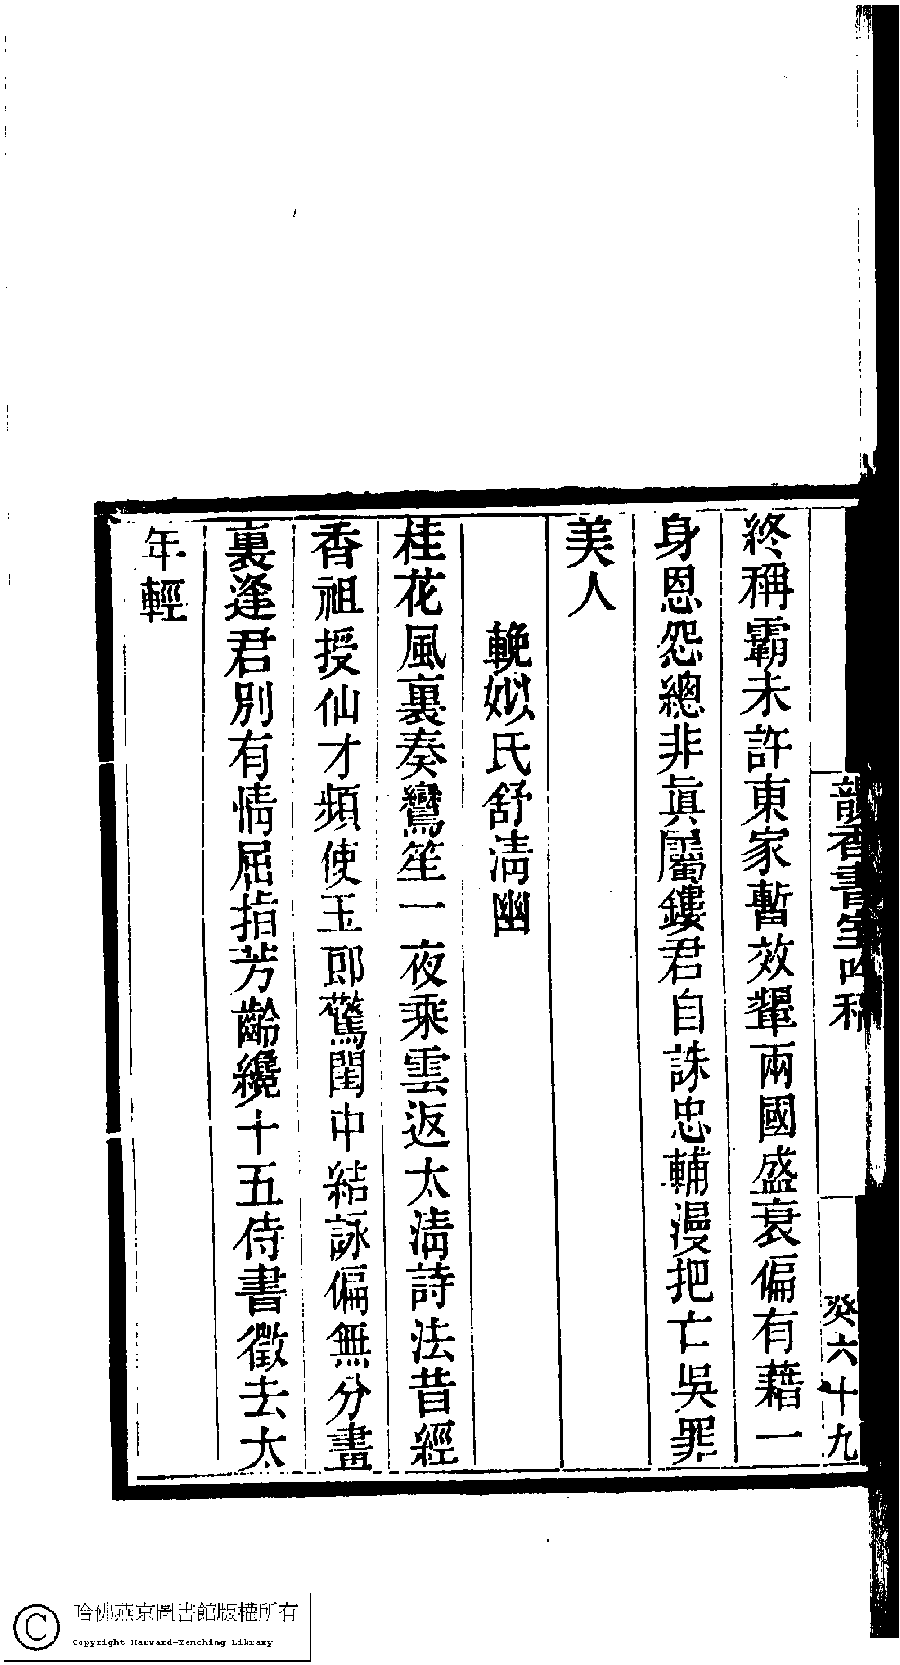 韻香書室吟稿
癸六十九
終稱霸未許東家暫效顰兩國盛衰偏有藉一
身恩怨總非眞屬鏤君自誅忠輔漫把亡吳罪
美人
輓姒氏舒淸幽
桂花風裏奏鸞笙一夜乘雲返太淸詩法昔經
香祖授仙才頻使玉郎驚閨中結詠偏無分畫
裏逢君別有情屈指芳齡纔十五侍書徵去太
年輕
哈佛燕京圖書館版權所有
Copyright Harvard-Yenching Library